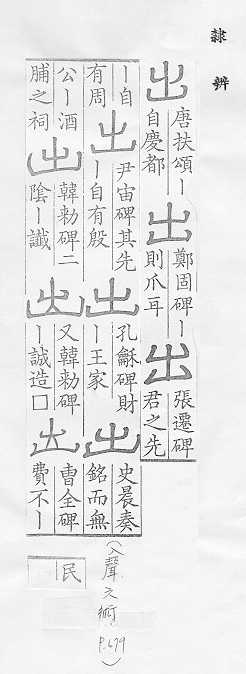 隸辨
出唐扶頌丨自慶都出鄭固碑丨則爪耳出張遷碑君之先
丨自有周出尹宙碑其先丨自有殷出孔龢碑財丨王家出史晨奏銘而無
公丨酒脯之祠出韓勑碑二陰丨讖出又韓勑碑丨誠造囗出曹全碑費不丨
民
(入聲六術 P.679)